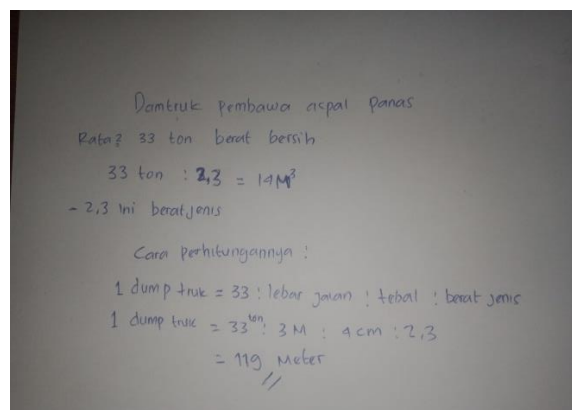 Damtruk pembawa aspal panas
Rata2 33 ton berat bersih
33 ton : 2,3 = 14 M³
- 2,3 ini berat jenis
Cara perhitungannya :
1 dump truk = 33 : lebar jalan : tebal : berat jenis
1 dump truk = 33 ton : 3 M : 4 cm : 2,3
= 119 Meter